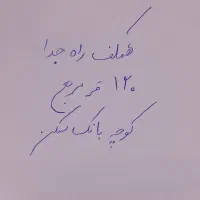 همکف راه جدا
۱۲۰ متر مربع
کوچه بانک مسکن